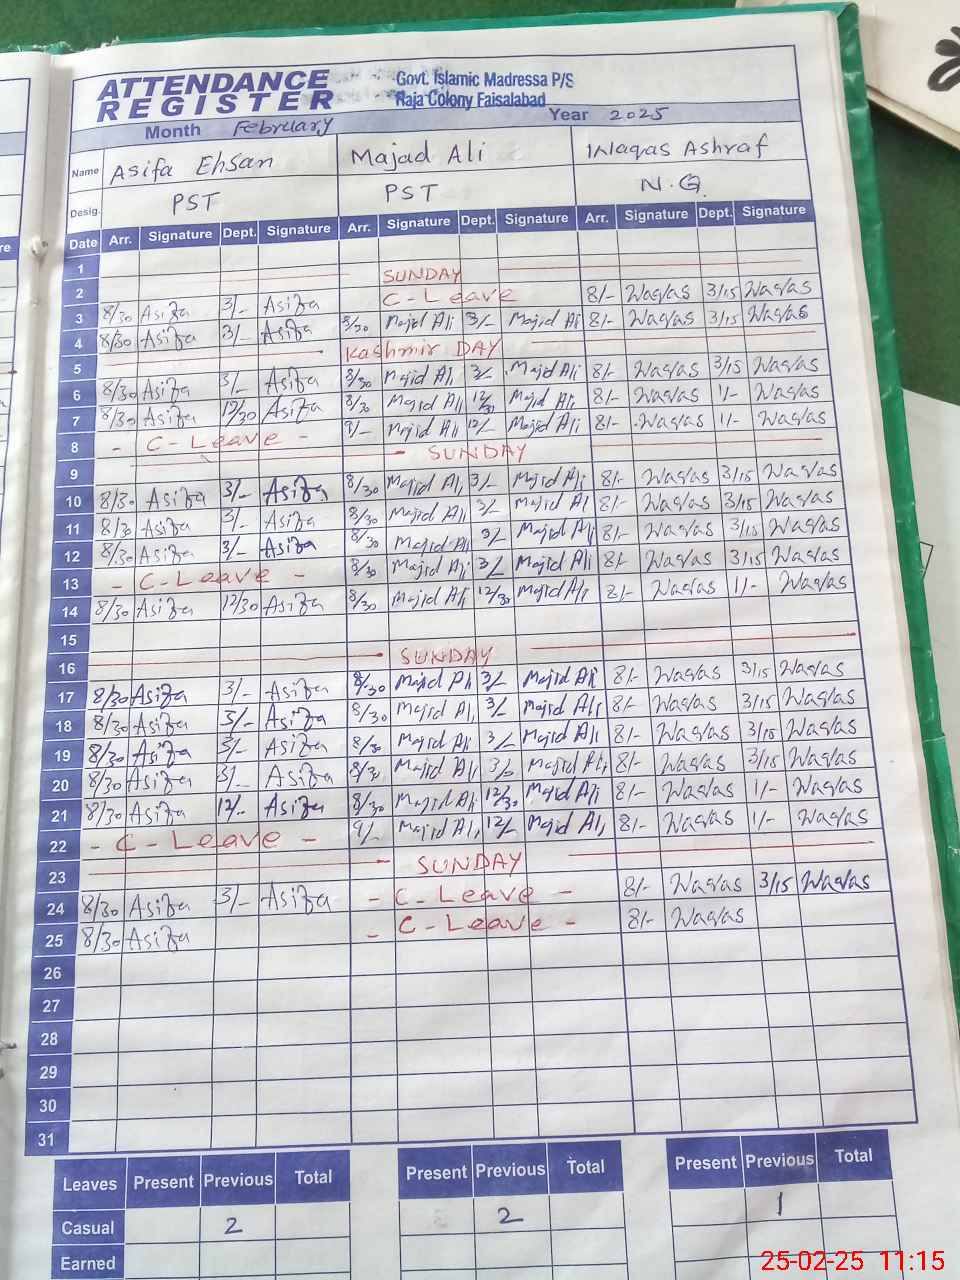 ATTENDANCE REGISTER
Govt. Islamic Madressa P/S
Raja Colony Faisalabad
Month February Year 2025
Name Asifa Ehsan Majad Ali Waqas Ashraf
Desig. PST PST N.Q
Date Arr. Signature Dept. Signature Arr. Signature Dept. Signature Arr. Signature Dept. Signature
1
2 SUNDAY
3 8/30 Asifa 3/- Asifa C-Leave 8/- Waqas 3/15 Waqas
4 8/30 Asifa 3/- Asifa 8/30 Majid Ali 3/- Majid Ali 8/- Waqas 3/15 Waqas
5 Kashmir DAY
6 8/30 Asifa 3/- Asifa 8/30 Majid Ali 3/- Majid Ali 8/- Waqas 3/15 Waqas
7 8/30 Asifa 12/30 Asifa 8/30 Majid Ali 12/30 Majid Ali 8/- Waqas 1/- Waqas
8 - C-Leave - 9/- Majid Ali 12/- Majid Ali 8/- Waqas 1/- Waqas
9 SUNDAY
10 8/30 Asifa 3/- Asifa 8/30 Majid Ali 3/- Majid Ali 8/- Waqas 3/15 Waqas
11 8/30 Asifa 3/- Asifa 8/30 Majid Ali 3/- Majid Ali 8/- Waqas 3/15 Waqas
12 8/30 Asifa 3/- Asifa 8/30 Majid Ali 3/- Majid Ali 8/- Waqas 3/15 Waqas
13 - C-Leave - 8/30 Majid Ali 3/- Majid Ali 8/- Waqas 3/15 Waqas
14 8/30 Asifa 12/30 Asifa 8/30 Majid Ali 12/30 Majid Ali 8/- Waqas 1/- Waqas
15
16 SUNDAY
17 8/30 Asifa 3/- Asifa 8/30 Majid Ali 3/- Majid Ali 8/- Waqas 3/15 Waqas
18 8/30 Asifa 3/- Asifa 8/30 Majid Ali 3/- Majid Ali 8/- Waqas 3/15 Waqas
19 8/30 Asifa 3/- Asifa 8/30 Majid Ali 3/- Majid Ali 8/- Waqas 3/15 Waqas
20 8/30 Asifa 3/- Asifa 8/30 Majid Ali 3/- Majid Ali 8/- Waqas 3/15 Waqas
21 8/30 Asifa 12/- Asifa 8/30 Majid Ali 12/30 Majid Ali 8/- Waqas 1/- Waqas
22 - C-Leave - 9/- Majid Ali 12/- Majid Ali 8/- Waqas 1/- Waqas
23 SUNDAY
24 8/30 Asifa 3/- Asifa - C-Leave - 8/- Waqas 3/15 Waqas
25 8/30 Asifa - C-Leave - 8/- Waqas
26
27
28
29
30
31
Leaves Present Previous Total Present Previous Total Present Previous Total
Casual 2 2 1
Earned
25-02-25 11:15